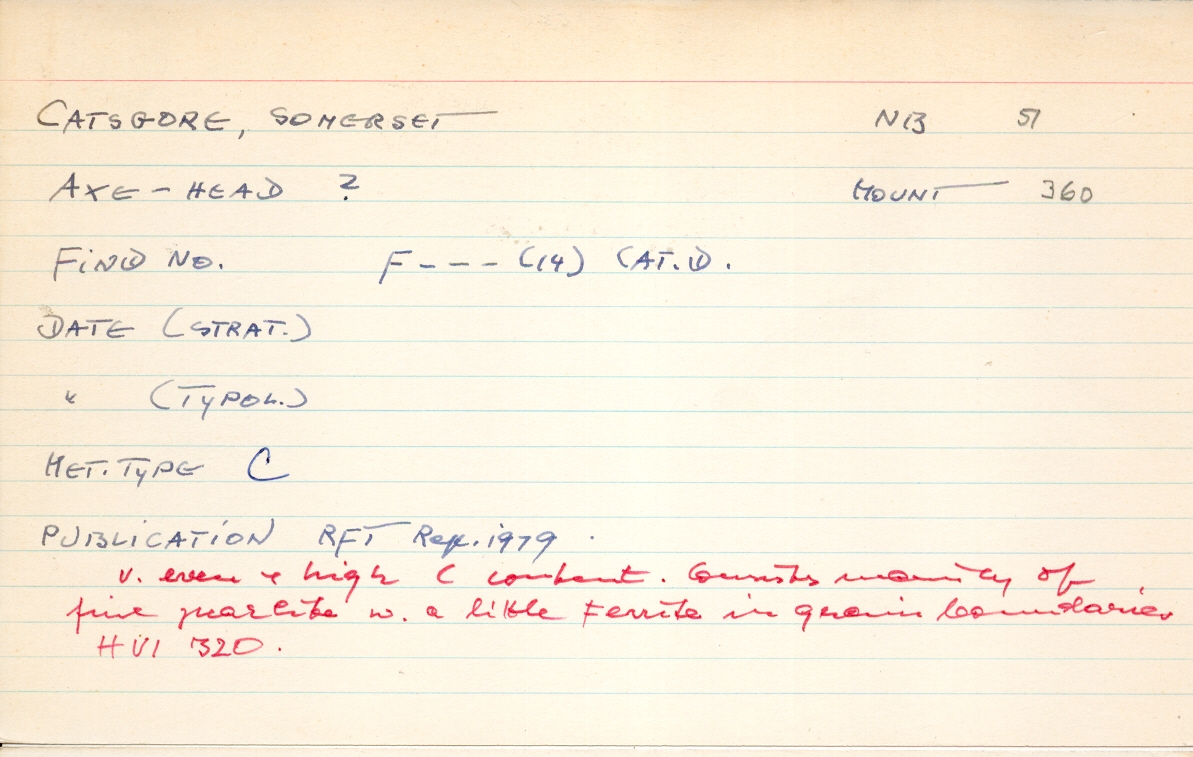 CATSGORE, SOMERSET NB 51
AXE-HEAD ? MOUNT 360
FIND NO. F--- (14) CAT.D.
DATE (STRAT.)
" (TYPOL.)
MET. TYPE C
PUBLICATION RFT Rep. 1979.
v. even & high C content. Consists mainly of
fine pearlite w. a little Ferrite in grain boundaries
HV1 320.